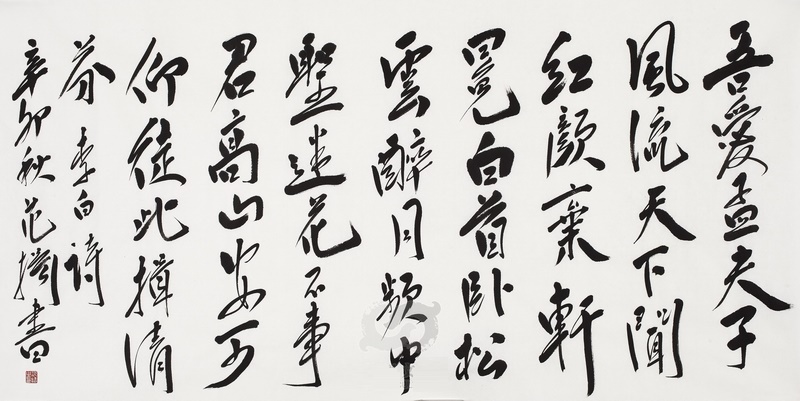 吾愛孟夫子
風流天下聞
紅顏棄軒
冕白首臥松
雲醉月頻中
聖迷花不事
君高山安可
仰徒此揖清
芬 李白詩
辛卯秋范書